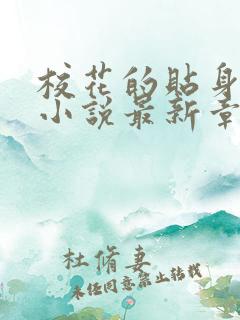 校花的貼身
小說最新章
杜脩妻
未经同意禁止转载